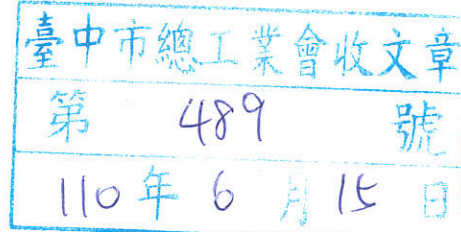 臺中市總工業會收文章
第 489 號
110年6月15日